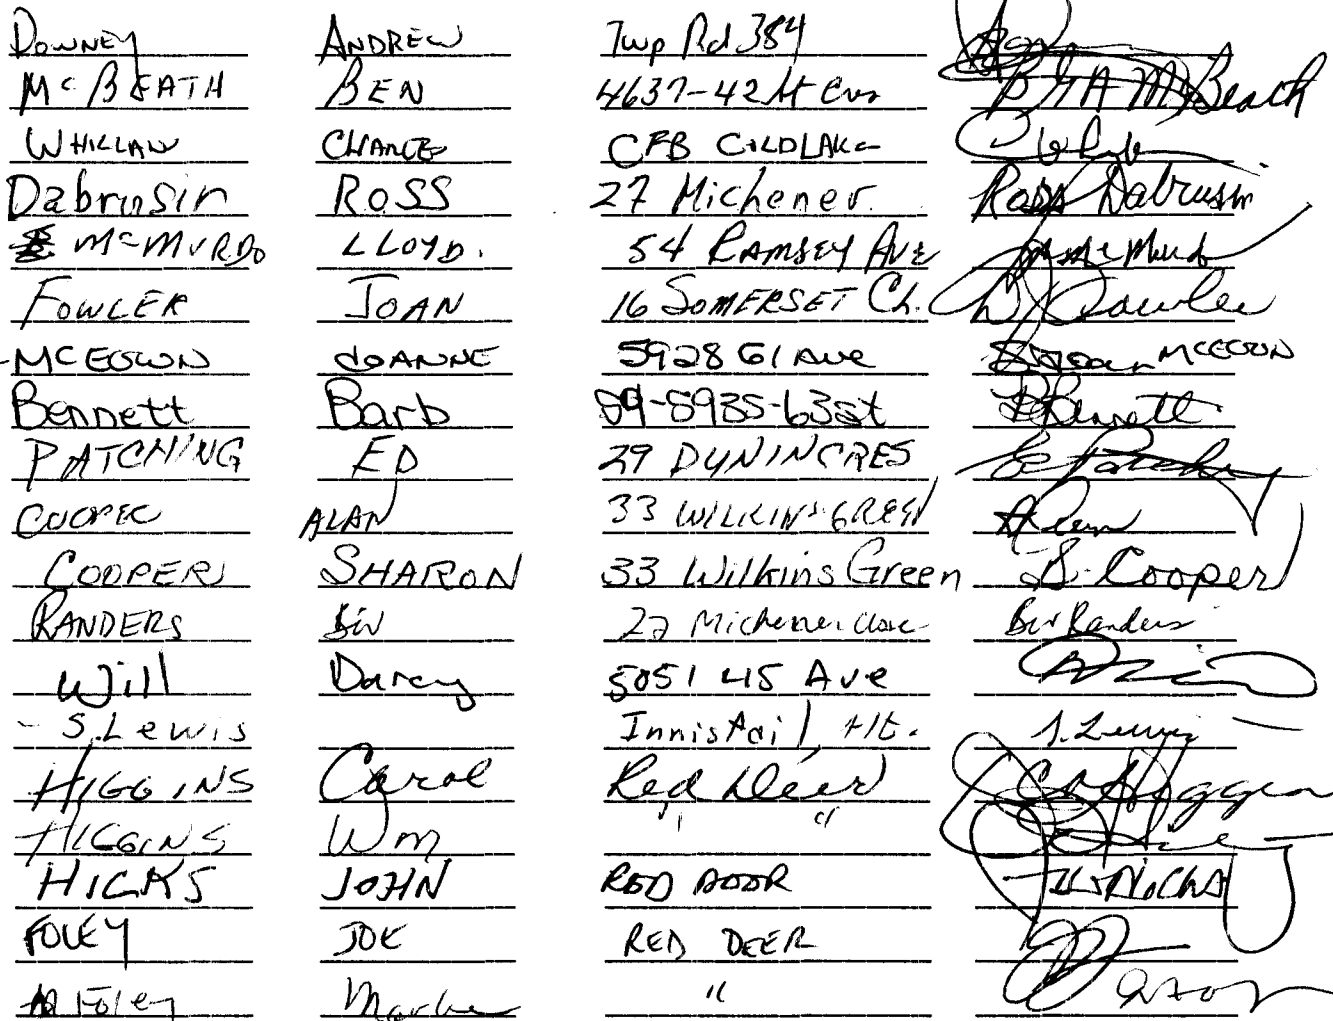 Downey ANDREW Twp Rd 384
McBEATH BEN 4637-42 St Cres B G A McBeath
WHILLAN CHANCE CFB COLDLAKE
Dabrusin ROSS 27 Michener. Ross Dabrusin
McMURDO LLOYD. 54 RAMSEY AVE McMurdo
FOWLER JOAN 16 SOMERSET Ch. J Fowler
MCEOWN JOANNE 5928 61 AVE MCEOWN
Bennett Barb 89-5935-63st B Bennett
PATCHING ED 29 DUNINCRES E Patching
COOPER ALAN 33 WILKINS GREEN
COOPER SHARON 33 Wilkins Green S. Cooper
RANDERS Biv 22 Michener close Biv Randers
Will Darcy 5051 45 Ave
S. Lewis Innisfail Alt. S. Lewis
HIGGINS Carol Red Deer C Higgins
HIGGINS Wm " "
HICKS JOHN RED DEER Hicks
FOLEY JOE RED DEER
Foley "